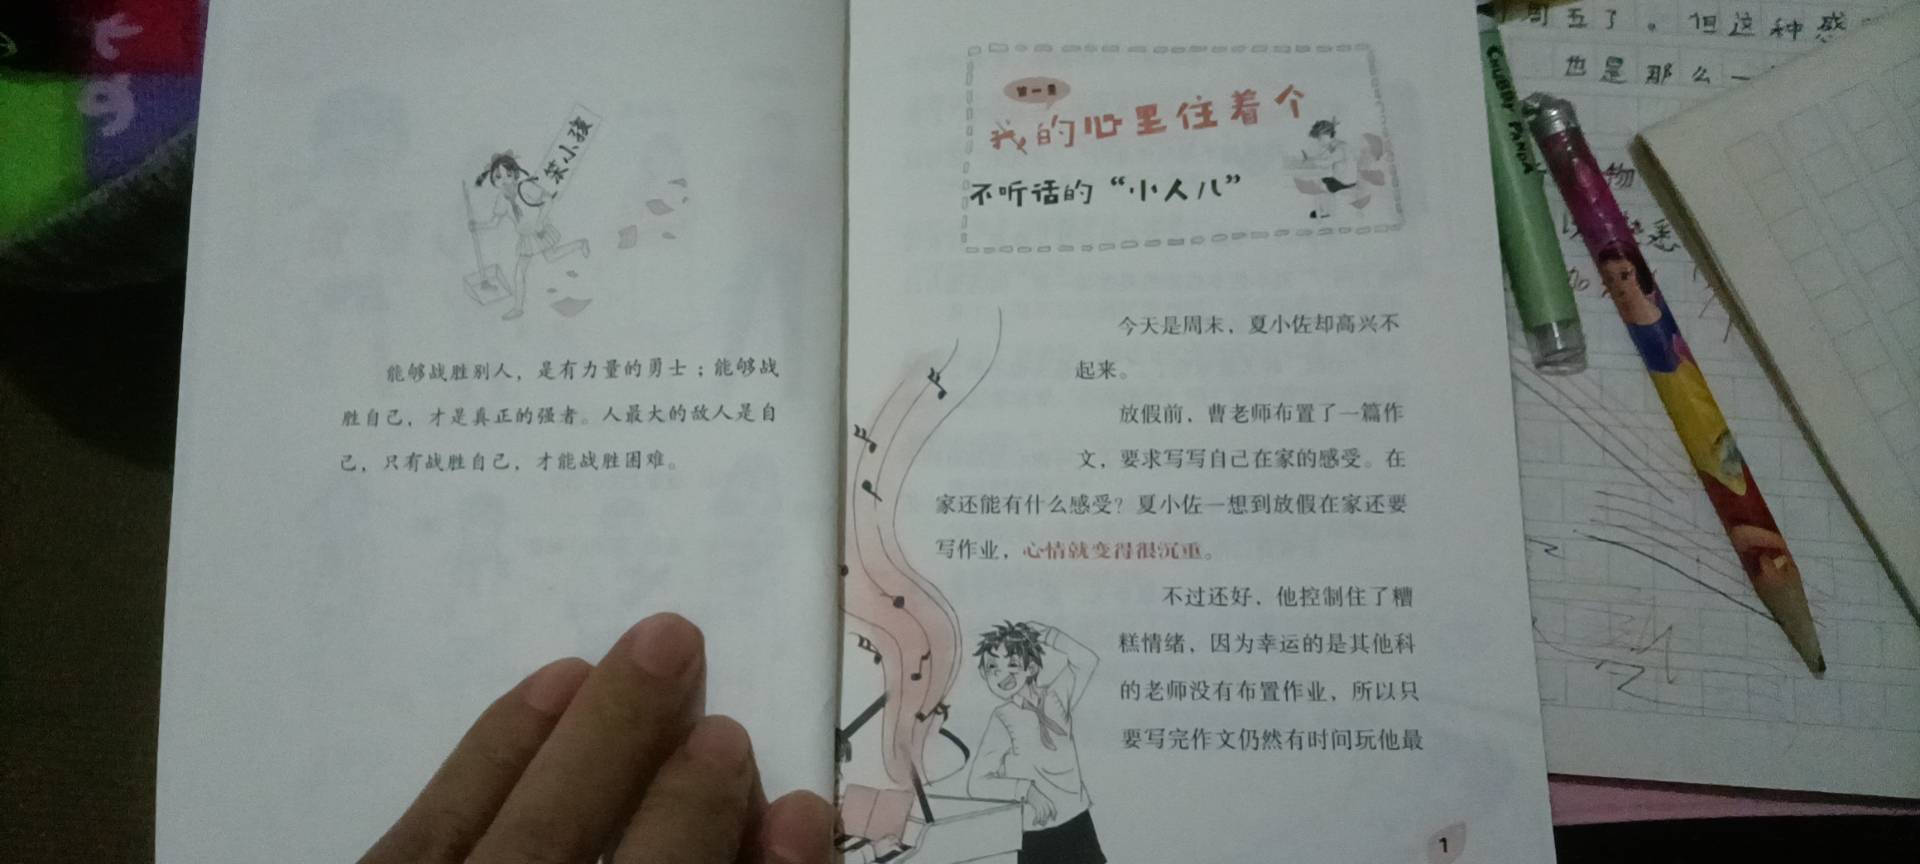 笨小孩
能够战胜别人，是有力量的勇士；能够战
胜自己，才是真正的强者。人最大的敌人是自
己，只有战胜自己，才能战胜困难。
第一章
我的心里住着个
不听话的“小人儿”
今天是周末，夏小佐却高兴不
起来。
放假前，曹老师布置了一篇作
文，要求写写自己在家的感受。在
家还能有什么感受？夏小佐一想到放假在家还要
写作业，心情就变得很沉重。
不过还好，他控制住了糟
糕情绪，因为幸运的是其他科
的老师没有布置作业，所以只
要写完作文仍然有时间玩他最
1
周五了。但这种感
也是那么一
物
悉
CHUBBY PANDA